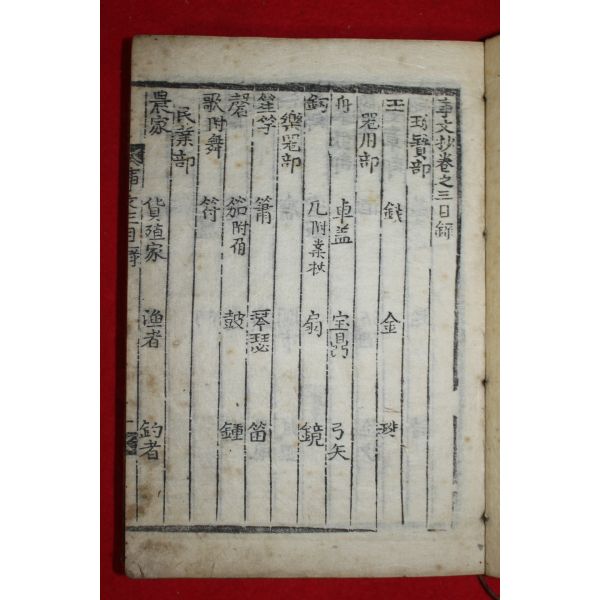 事文抄卷之三目錄
寶部
玉 錢 金
器用部
舟 車盖 宝鼎 弓矢
釼 几附案杖 扇 鏡
樂器部
笙竽 簫 琴瑟 笛
磬 笳附角 鼓 鍾
歌附舞 符
民業部
農家 貨殖家 漁者 釣者